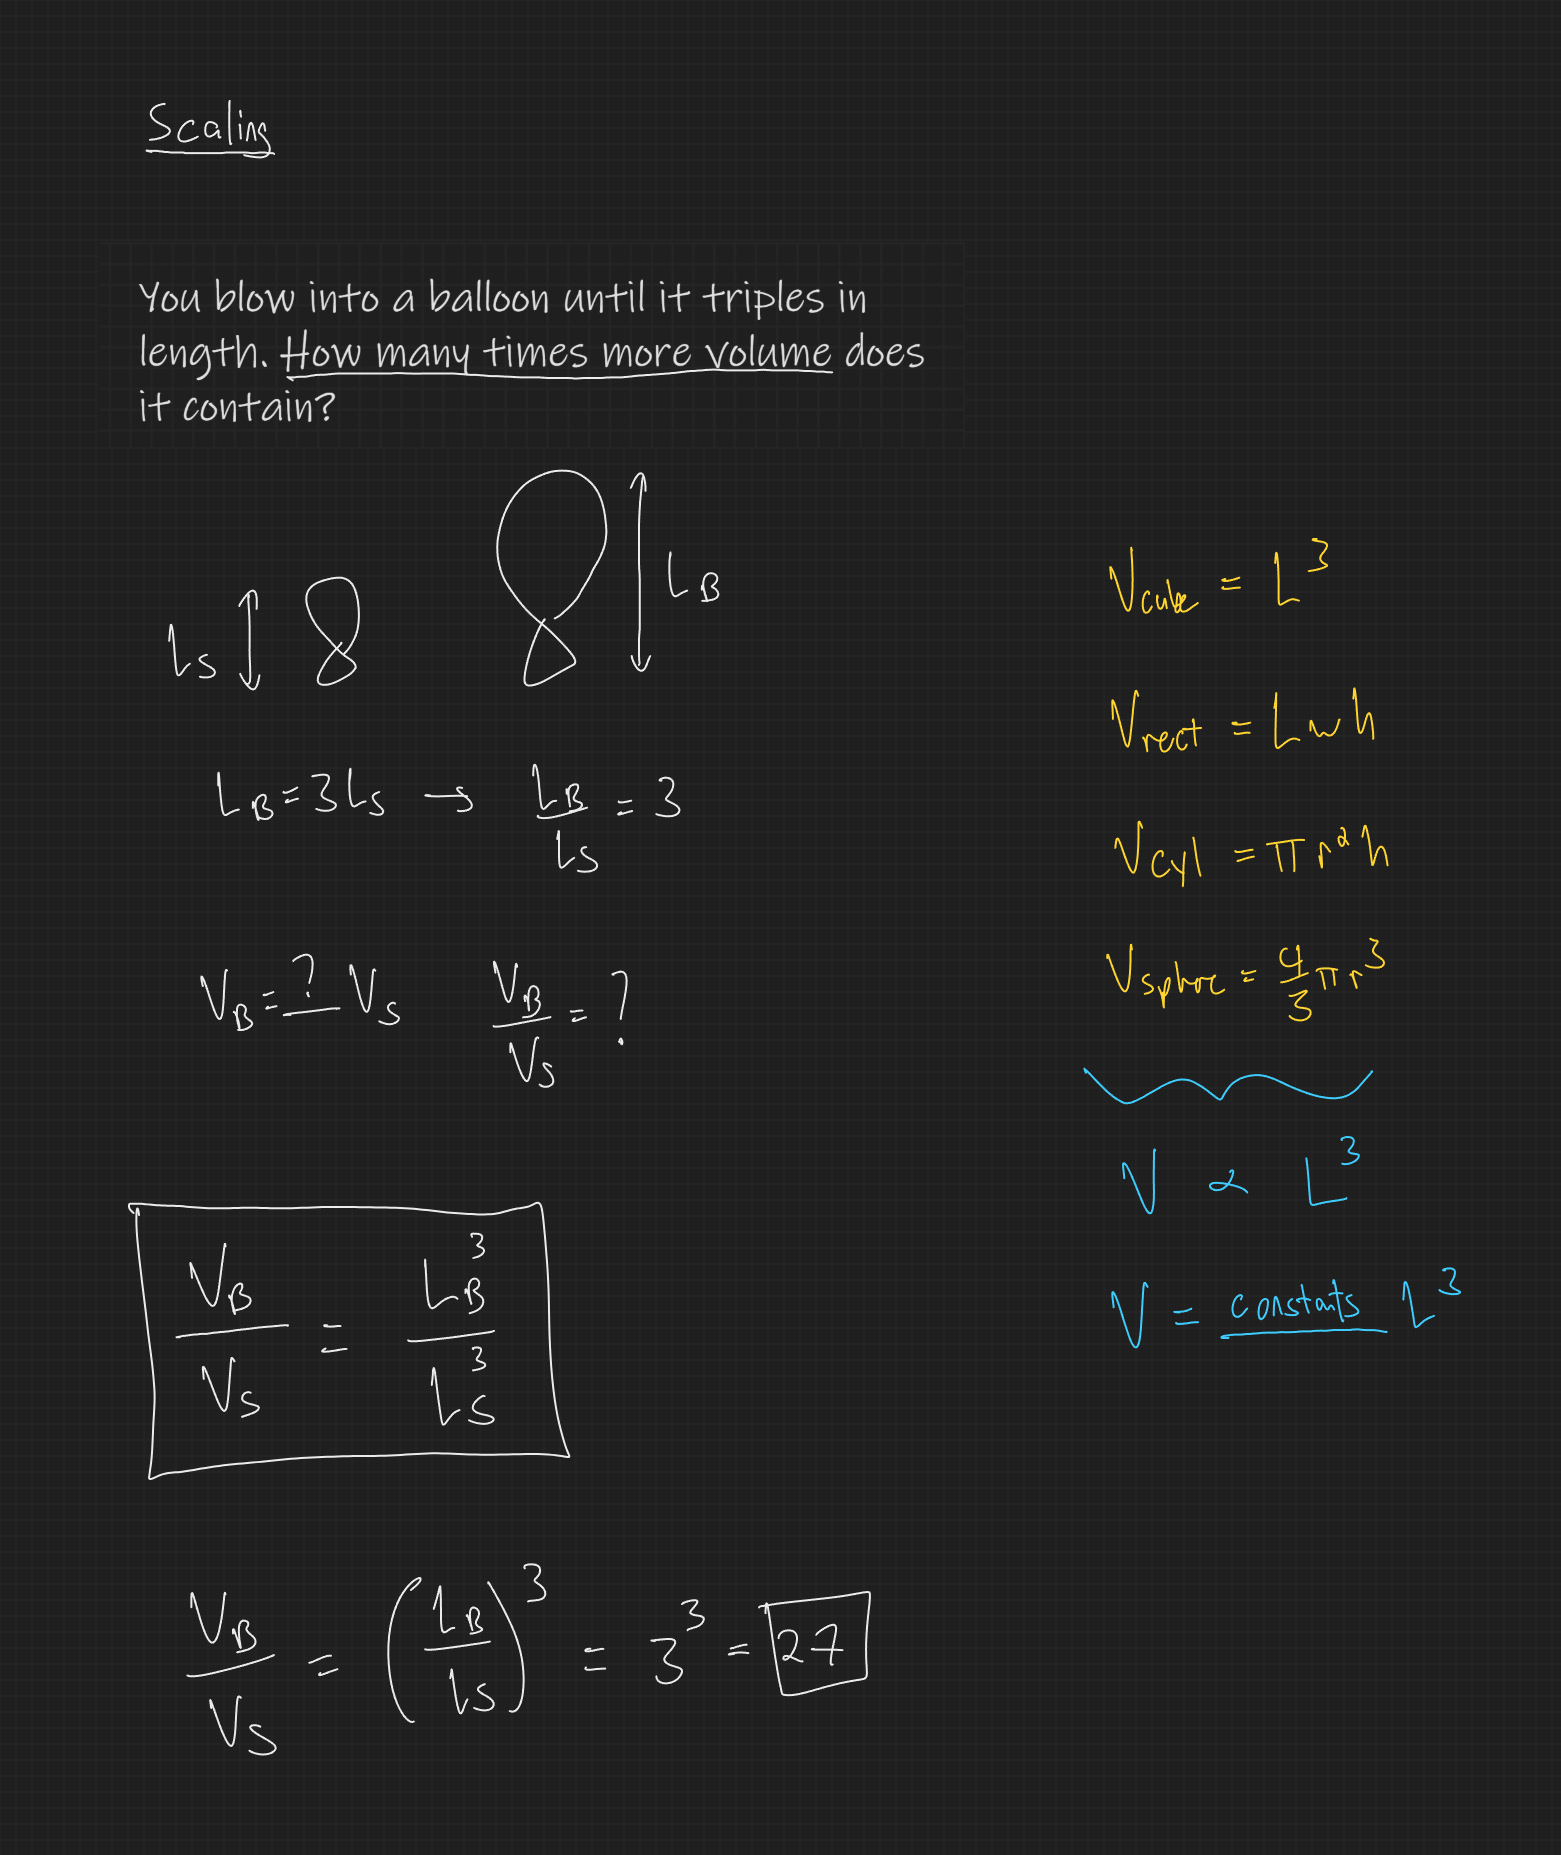 Scaling
You blow into a balloon until it triples in
length. How many times more volume does
it contain?
L_S
L_B
L_B = 3L_S → L_B/L_S = 3
V_B = ? V_S V_B/V_S = ?
V_B/V_S = L_B^3/L_S^3
V_B/V_S = (L_B/L_S)^3 = 3^3 = 27
V_cube = L^3
V_rect = L w h
V_cyl = π r^2 h
V_sphere = 4/3 π r^3
V ∝ L^3
V = constants L^3